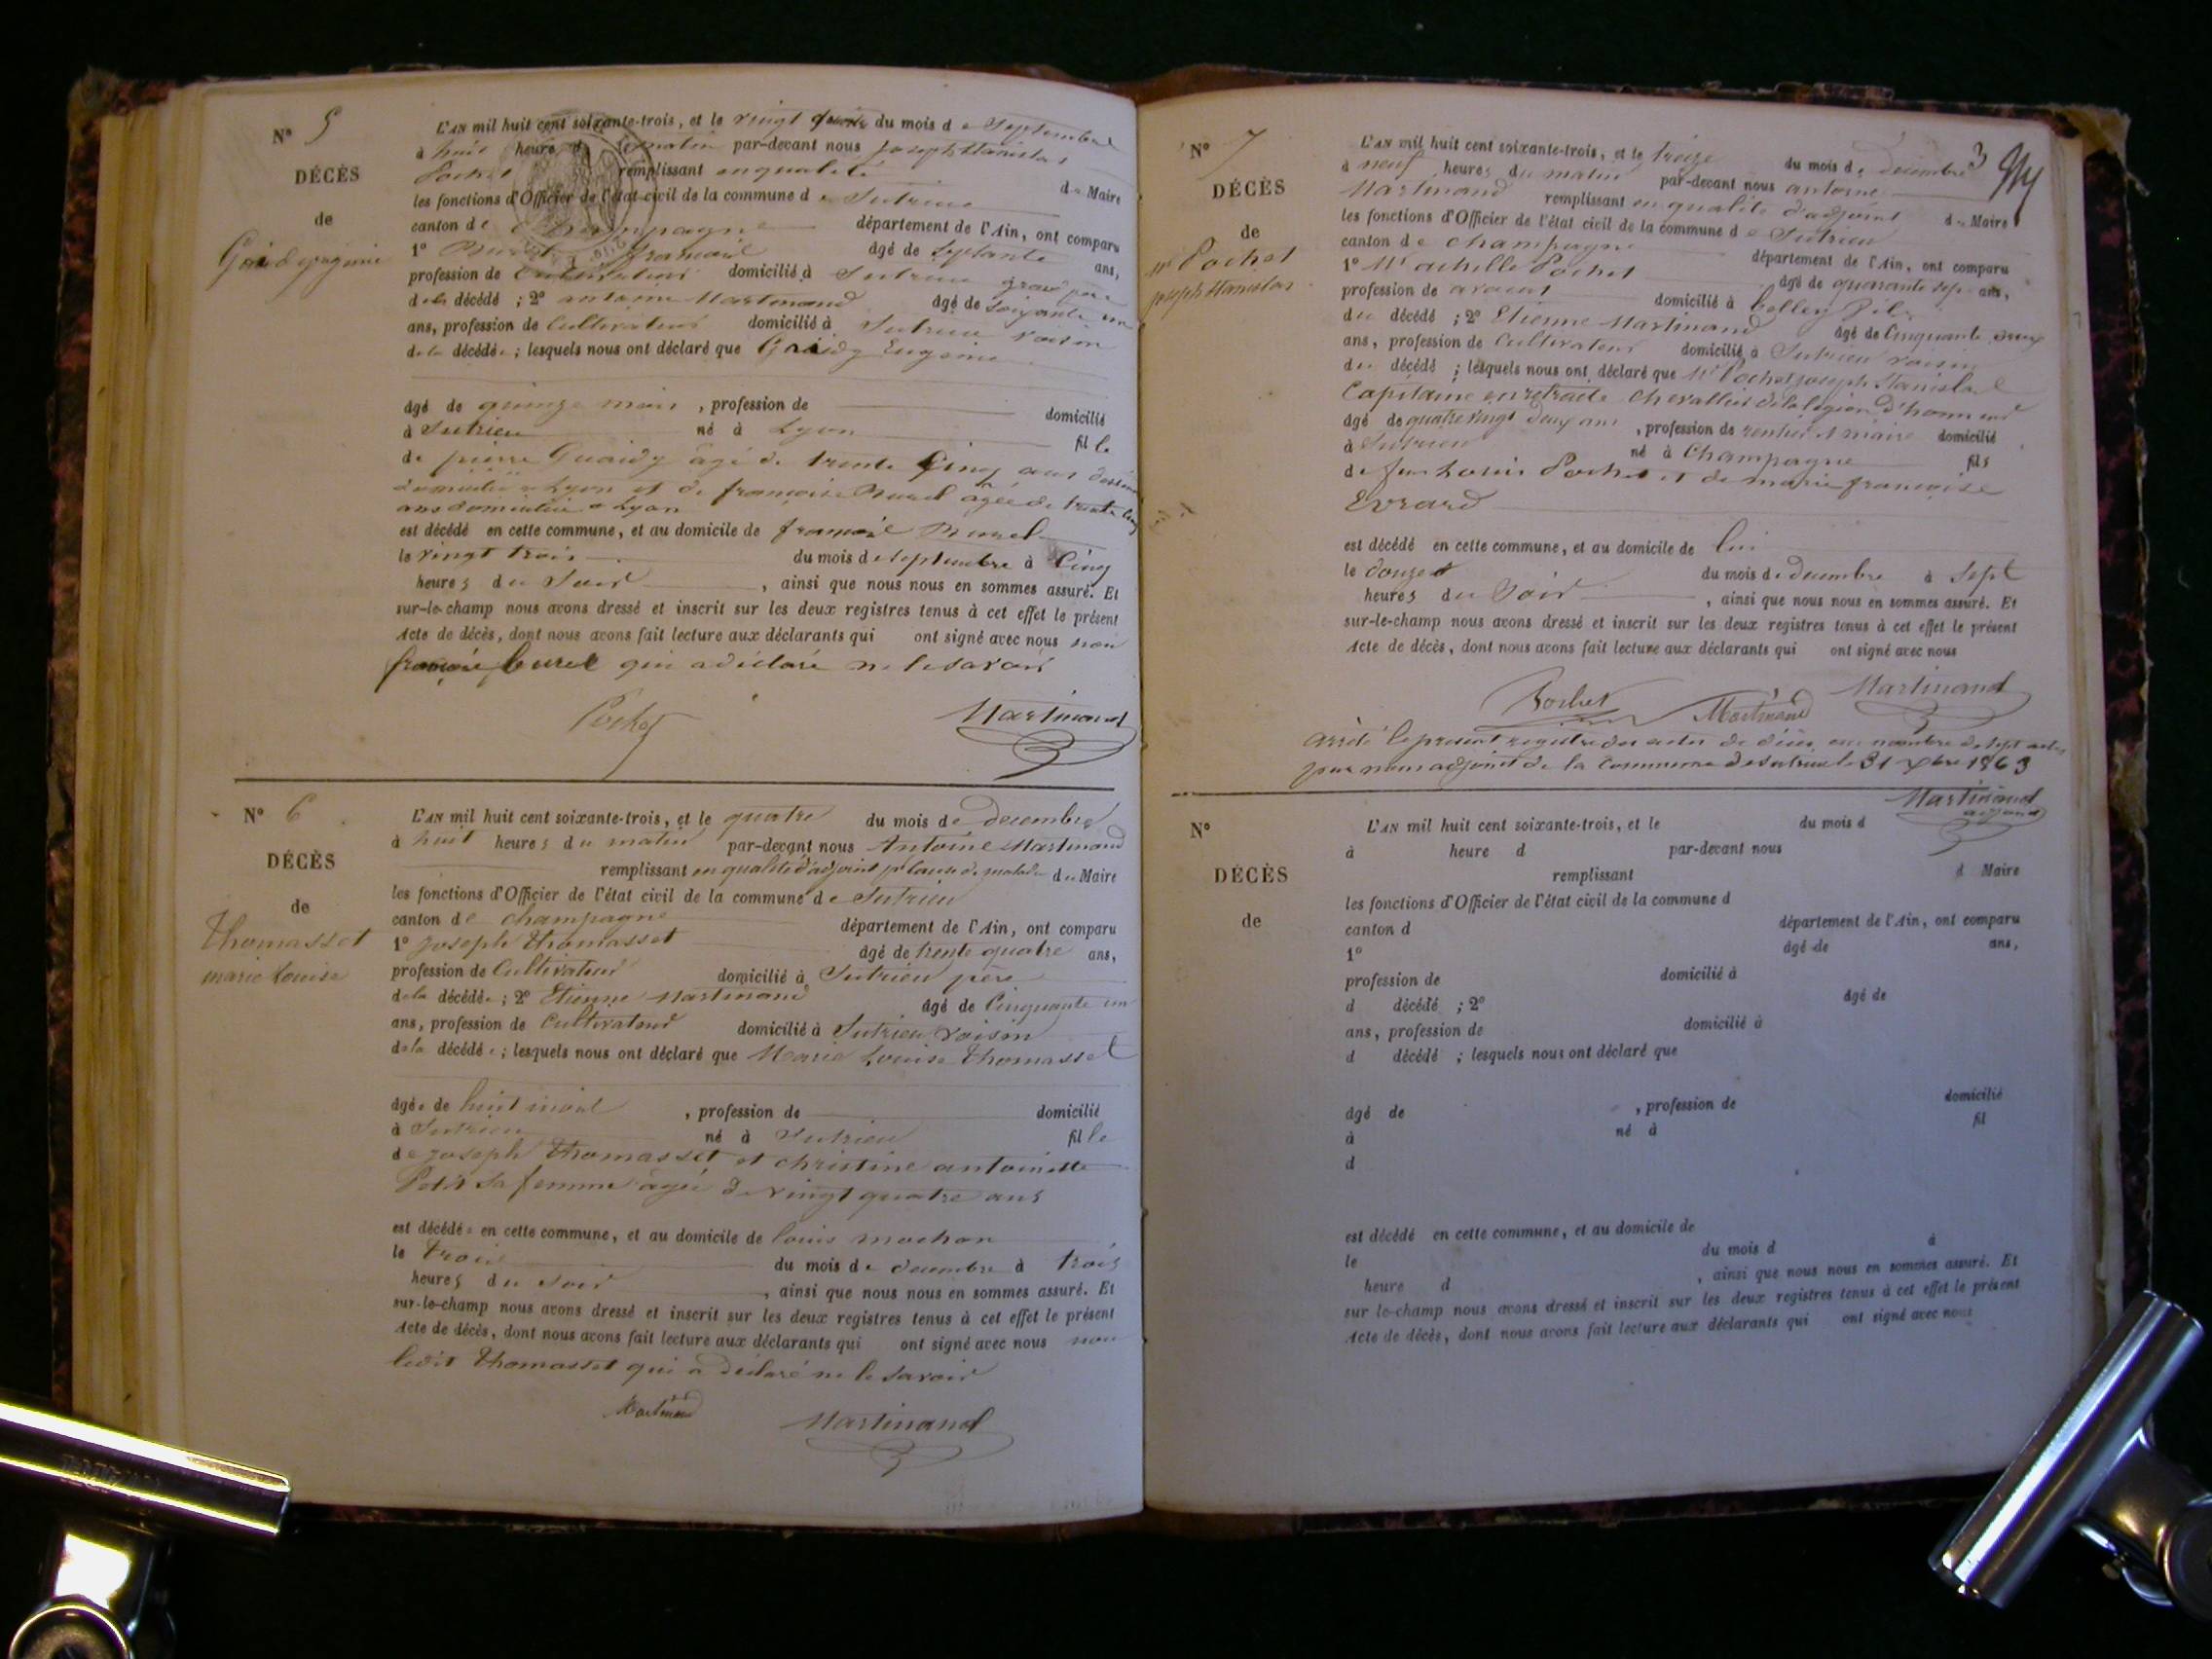 N° 5
DÉCÈS
de
L'AN mil huit cent soixante-trois, et le vingt quatre du mois de Septembre
à huit heure d matin par-devant nous joseph Stanislas
Pochet remplissant en qualité de Maire
les fonctions d'Officier de l'état civil de la commune de Sutrieu
canton de Champagne département de l'Ain, ont comparu
1° françois âgé de Septante ans,
profession de Cultivateur domicilié à Sutrieu grand père
de la décédé ; 2° antoine Martinand âgé de Soixante un
ans, profession de Cultivateur domicilié à Sutrieu voisin
de la décédée ; lesquels nous ont déclaré que Eugénie
âgé de quinze mois , profession de domicilié
à Sutrieu né à Lyon fille
de pierre Guaidy âgé de trente Cinq ans
domicilié a Lyon et de françoise âgée de trente Cinq
ans domiciliée a Lyon
est décédé en cette commune, et au domicile de françois
le vingt trois du mois de septembre à Cinq
heures du Soir , ainsi que nous nous en sommes assuré. Et
sur-le-champ nous avons dressé et inscrit sur les deux registres tenus à cet effet le présent
Acte de décès, dont nous avons fait lecture aux déclarants qui ont signé avec nous non
françois qui a déclaré ne le savoir
Pochet Martinand
N° 6
DÉCÈS
de
Thomasset
marie Louise
L'AN mil huit cent soixante-trois, et le quatre du mois de decembre
à huit heures du matin par-devant nous Antoine Martinand
remplissant en qualité d'adjoint pr cause de maladie du Maire
les fonctions d'Officier de l'état civil de la commune de Sutrieu
canton de champagne département de l'Ain, ont comparu
1° joseph Thomasset âgé de trente quatre ans,
profession de Cultivateur domicilié à Sutrieu père
de la décédée ; 2° Etienne Martinand âgé de Cinquante un
ans, profession de Cultivateur domicilié à Sutrieu voisin
de la décédée ; lesquels nous ont déclaré que Marie Louise Thomasset
âgée de huit mois , profession de domicilié
à Sutrieu né à Sutrieu fille
de joseph Thomasset et christine antoinette
Petit Sa femme âgée de vingt quatre ans
est décédée en cette commune, et au domicile de louis mochon
le trois du mois de decembre à trois
heures du soir , ainsi que nous nous en sommes assuré. Et
sur-le-champ nous avons dressé et inscrit sur les deux registres tenus à cet effet le présent
Acte de décès, dont nous avons fait lecture aux déclarants qui ont signé avec nous non
ledit Thomasset qui a déclaré ne le savoir
Martinand Martinand
3
N° 7
DÉCÈS
de
Mr Pochet
joseph Stanislas
L'AN mil huit cent soixante-trois, et le treize du mois de decembre
à neuf heures du matin par-devant nous antoine
Martinand remplissant en qualité d'adjoint du Maire
les fonctions d'Officier de l'état civil de la commune de Sutrieu
canton de champagne département de l'Ain, ont comparu
1° Mr achille Pochet âgé de quarante sept ans,
profession de avocat domicilié à belley fils
du décédé ; 2° Etienne Martinand âgé de Cinquante deux
ans, profession de Cultivateur domicilié à Sutrieu voisin
du décédé ; lesquels nous ont déclaré que Mr Pochet joseph Stanislas
Capitaine en retraite chevallier de la légion d'honneur
âgé de quatre vingt deux ans , profession de rentier et maire domicilié
à Sutrieu né à Champagne fils
de feu Louis Pochet et de marie françoise
Evrard
est décédé en cette commune, et au domicile de lui
le douze du mois de decembre à sept
heures du Soir , ainsi que nous nous en sommes assuré. Et
sur-le-champ nous avons dressé et inscrit sur les deux registres tenus à cet effet le présent
Acte de décès, dont nous avons fait lecture aux déclarants qui ont signé avec nous
Pochet Martinand Martinand
arrêté le present registre des actes de décès au nombre de sept actes
par nous adjoint de la Commune de Sutrieu le 31 Xbre 1863
Martinand
adjoint
N°
DÉCÈS
de
L'AN mil huit cent soixante-trois, et le du mois d
à heure d par-devant nous
remplissant d Maire
les fonctions d'Officier de l'état civil de la commune d
canton d département de l'Ain, ont comparu
1° âgé de ans,
profession de domicilié à
d décédé ; 2° âgé de
ans, profession de domicilié à
d décédé ; lesquels nous ont déclaré que
âgé de , profession de domicilié
à né à fil
d
est décédé en cette commune, et au domicile de
le du mois d à
heure d , ainsi que nous nous en sommes assuré. Et
sur le-champ nous avons dressé et inscrit sur les deux registres tenus à cet effet le présent
Acte de décès, dont nous avons fait lecture aux déclarants qui ont signé avec nous